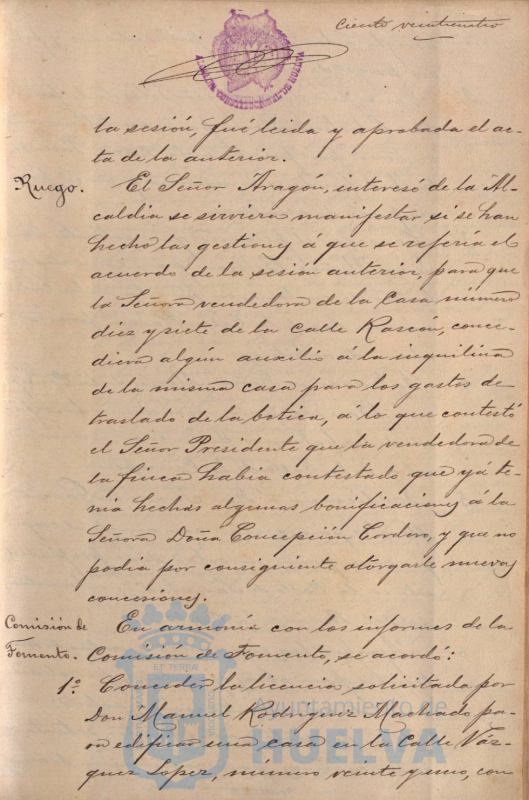 Ciento veinticuatro
ALCALDIA CONSTITUCIONAL DE HUELVA
la sesión, fué leida y aprobada el ac-
ta de la anterior.
Ruego. El Señor Aragón, interesó de la Al-
caldia se sirviera manifestar si se han
hecho las gestiones á que se referia el
acuerdo de la sesión anterior, para que
la Señora vendedora de la Casa número
diez y siete de la calle Rascón, conce-
diera algún auxilio á la inquilina
de la misma casa para los gastos de
traslado de la botica, á lo que contestó
el Señor Presidente que la vendedora de
la finca habia contestado que yá te-
nia hechas algunas bonificaciones á la
Señora Doña Concepción Cordero, y que no
podia por consiguiente otorgarle nuevas
concesiones.
Comisión de Fomento. En armonia con los informes de la
Comisión de Fomento, se acordó:
1º Conceder la licencia solicitada por
Don Manuel Rodríguez Machado pa-
ra edificar una casa en la Calle Váz-
quez Lopez, número veinte y uno, con
ET TERRAE
Ayuntamiento de
HUELVA